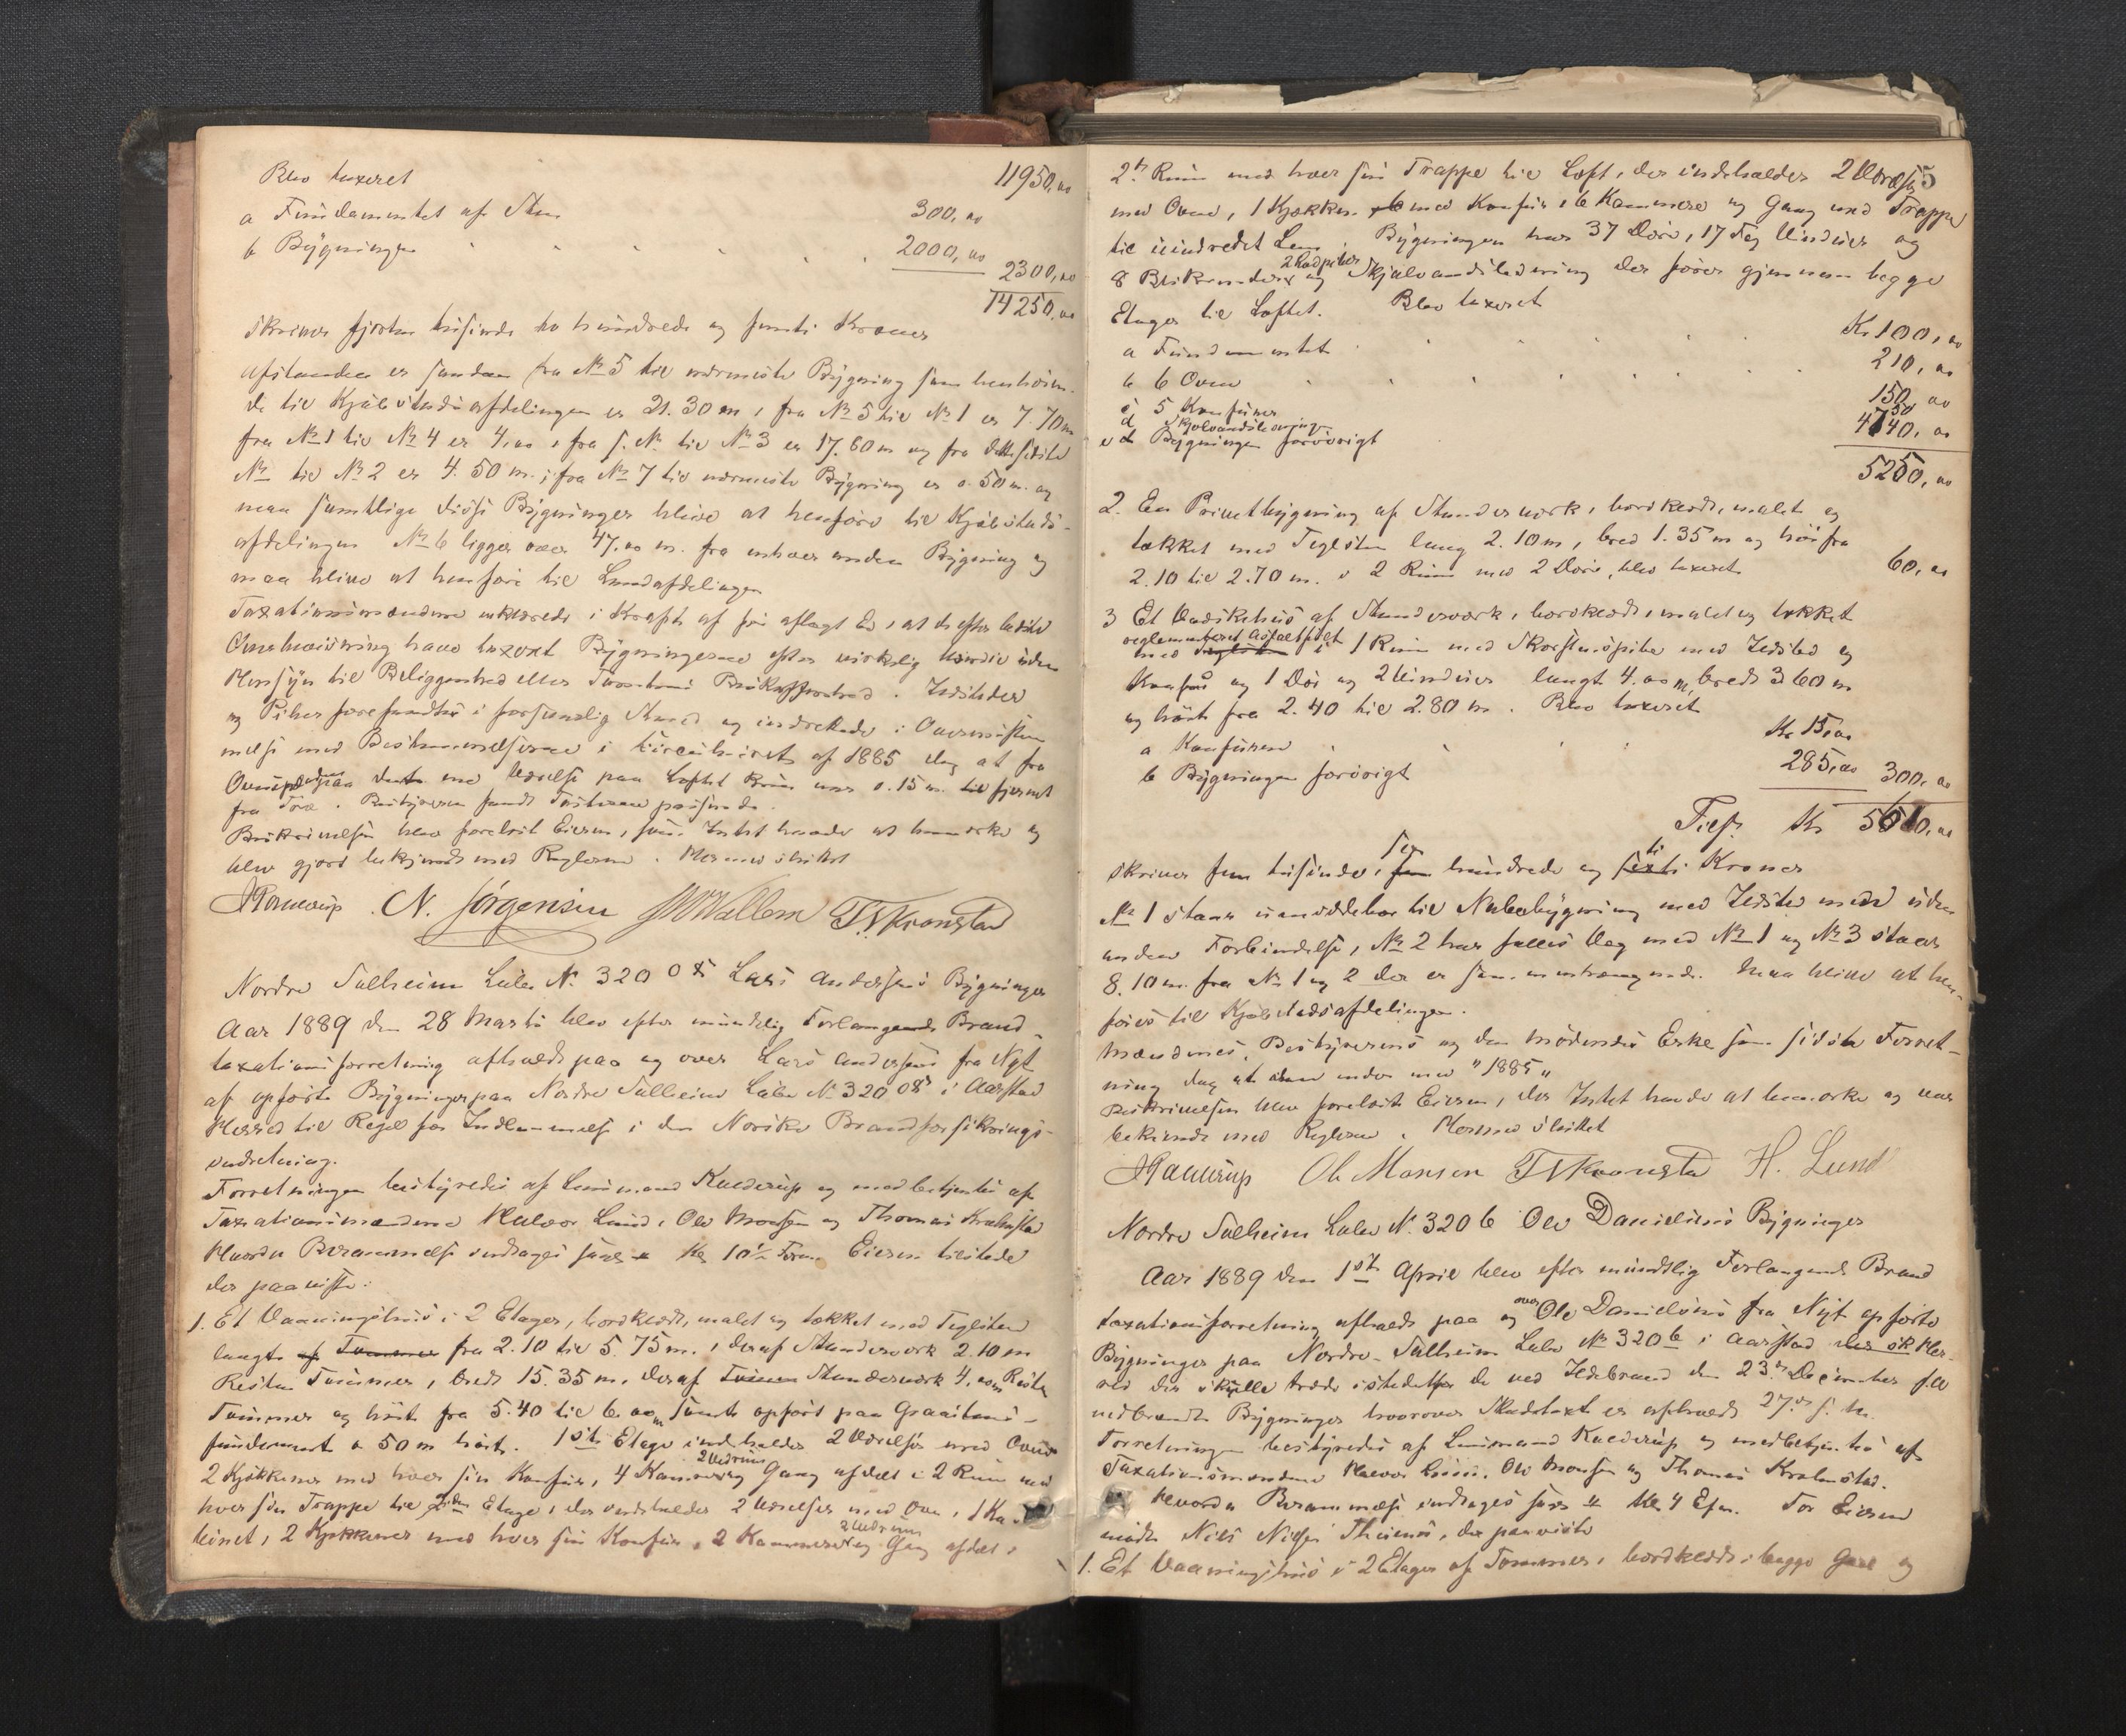 Blev taxeret 11950,00
a Fundamentet af Sten 300,00
b Bygningen 2000,00
2300,00
14250,00
skriver fjorten tusinde to hundrede og femti Kroner
Afstanden er saadan fra No 5 til nærmeste Bygning som henhøren-
de til Kjøbstadsafdelingen er 21.30 m, fra No 5 til No 1 er 7.70 m
fra No 1 til No 4 er 4,00, fra s. No til No 3 er 17.60 m og fra dette sidste
No til No 2 er 4.50 m.; fra No 7 til nærmeste Bygning er 0.50 m. og
maa samtlige disse Bygninger blive at henføre til Kjøbstads-
afdelingen No 6 ligger over 47,00 m. fra enhver anden Bygning og
maa blive at henføre til Landafdelingen
Taxationsmændene erklærede i Kraft af før aflagt Ed, at de efter bedste
Overbeviisning have taxeret Bygningerne efter virkelig Værdie uden
Hensyn til Beliggenhed eller Brugbarhed. Ildsteder
og Piber forefandtes i forsvarlig Stand og indrettede i Overensstem
melse med Bestemmelserne i Circulairet af 1885 dog at fra
Ovnspipen paa det ene Værelse paa Loftet var 0.15 m. til fjernet
fra Træ. Bestyreren fandt Taxterne passende.
Beskrivelsen blev forelæst Eieren, som Intet havde at bemærke og
blev gjort bekjendt med Reglerne. Hermed sluttet
N. Jørgensen Wallem T. Kronstad
Nordre Solheim Løbe No 320 Lars Andersens Bygninger
Aar 1889 den 28 Marts blev efter mundtlig Forlangende Brand-
taxationsforretning afholdt paa og over Lars Andersens fra Nyt
af opførte Bygninger paa Nordre Solheim Løbe No 320 i Aarstad
Herred til Regel for Indlemmelse i den Norske Brandforsikrings-
indretning.
Forretningen bestyredes af Lensmand og medbetjentes af
Taxationsmændene Halvor Lund, Ole Monsen og Thomas Krohnstad
Hvordn Berammelse indtages Kl 10½ Form. Eieren tilstede
der paaviste.
1. Et Vaaningshus i 2 Etager, bordklædt, malet og tækket med Teglsten
langt af Tømmer fra 2.10 til 5.75 m., deraf Stenderværk 2.10 m
Resten Tømmer, bredt 15.35 m, deraf Stenderværk 4,00 m Resten
Tømmer og høit fra 5.40 til 6.00 m samt opført paa Graastens-
fundament 0.50 m høit. 1ste Etage indeholder 2 Værelser med Ovne
2 Kjøkkener med hver sin Komfur, 4 Kammere 2 Vedrum og Gang afdelt i 2 Rum med
hver sin Trappe til 2den Etage, der indeholder 2 Værelser med Ovn, 1 Ka-
binet, 2 Kjøkkener med hver sin Komfur, 2 Kammere 2 Vedrum og Gang afdelt i
5
2de Rum med hver sin Trappe til Loft, der indeholder 2 Værelser
med Ovne, 1 Kjøkken med Komfur, 6 Kammere og Gang med Trappe
til uindredet Lem. Bygningen har 37 Døre, 17 Fag Vinduer og
8 2 Rødpiber og Skjølvandsledning der fører gjennem begge
Etager til Loftet. Blev taxeret
a Fundamentet Kr 100,00
b 6 Ovne 210,00
c 5 Komfurer 150,00
d Skjølvandsledningen 50
e d Bygningen forøvrigt 4740,00
5250,00
2. En Privetbygning af Stenderværk, bordklædt, malet og
tækket med Teglsten lang 2.10 m, bred 1.35 m og høi fra
2.10 til 2.70 m. i 2 Rum med 2 Døre, blev taxeret 60,00
3 Et Vadskehus af Stenderværk, bordklædt, malet og tækket
reglementeret Asfaltfilt
med Teglsten i 1 Rum med Skorstenspibe med Ildsted og
Komfur og 1 Dør og 2 Vinduer langt 4.00 m, bredt 3.60 m
og høit fra 2.40 til 2.80 m. Blev taxeret
a Komfuren Kr 15,00
b Bygningen forøvrigt 285,00 300,00
Tils. Kr 5610,00
skriver fem tusinde, fem sex hundrede og sexti ti Kroner
No 1 staar umiddelbar til Nabobygning med Ildsted men uden
anden Forbindelse, No 2 har fælles Væg med No 1 og No 3 staar
8.10 m. fra No 1 og 2 der er sam-menhængende. Maa blive at hen-
føres til Kjøbstadsafdelingen.
Mændenes, Bestyrerens og den mødendes Erkl. som sidste Forret-
ning dog at den ender med "1885"
Beskrivelsen blev forelæst Eieren, der Intet havde at bemærke og var
bekjendt med Reglerne. Hermed sluttet
Ole Monsen T. Kronstad H. Lund
Nordre Solheim Løbe No 320 b Ole Danielsens Bygninger
Aar 1889 den 1ste April blev efter mundtlig Forlangende Brand
taxationsforretning afholdt paa og over Ole Danielsens fra Nyt opførte
Bygninger paa Nordre Solheim Løbe No 320 b i Aarstad Her-
red der skulle træde istedetfor de ved Ildebrand den 23de December f.A
nedbrændte Bygninger hvorover Skadetaxt er afholdt 27de s. M.
Forretningen bestyredes af Lensmand og medbetjentes af
Taxationsmændene Halvor Lund, Ole Monsen og Thomas Krohnstad.
Hvordn Berammelse indtages Kl 4 Efm. For Eieren
mødte Nils Nilsen, der paaviste
1. Et Vaaningshus i 2 Etager af Tømmer, bordklædt i begge Gavl og